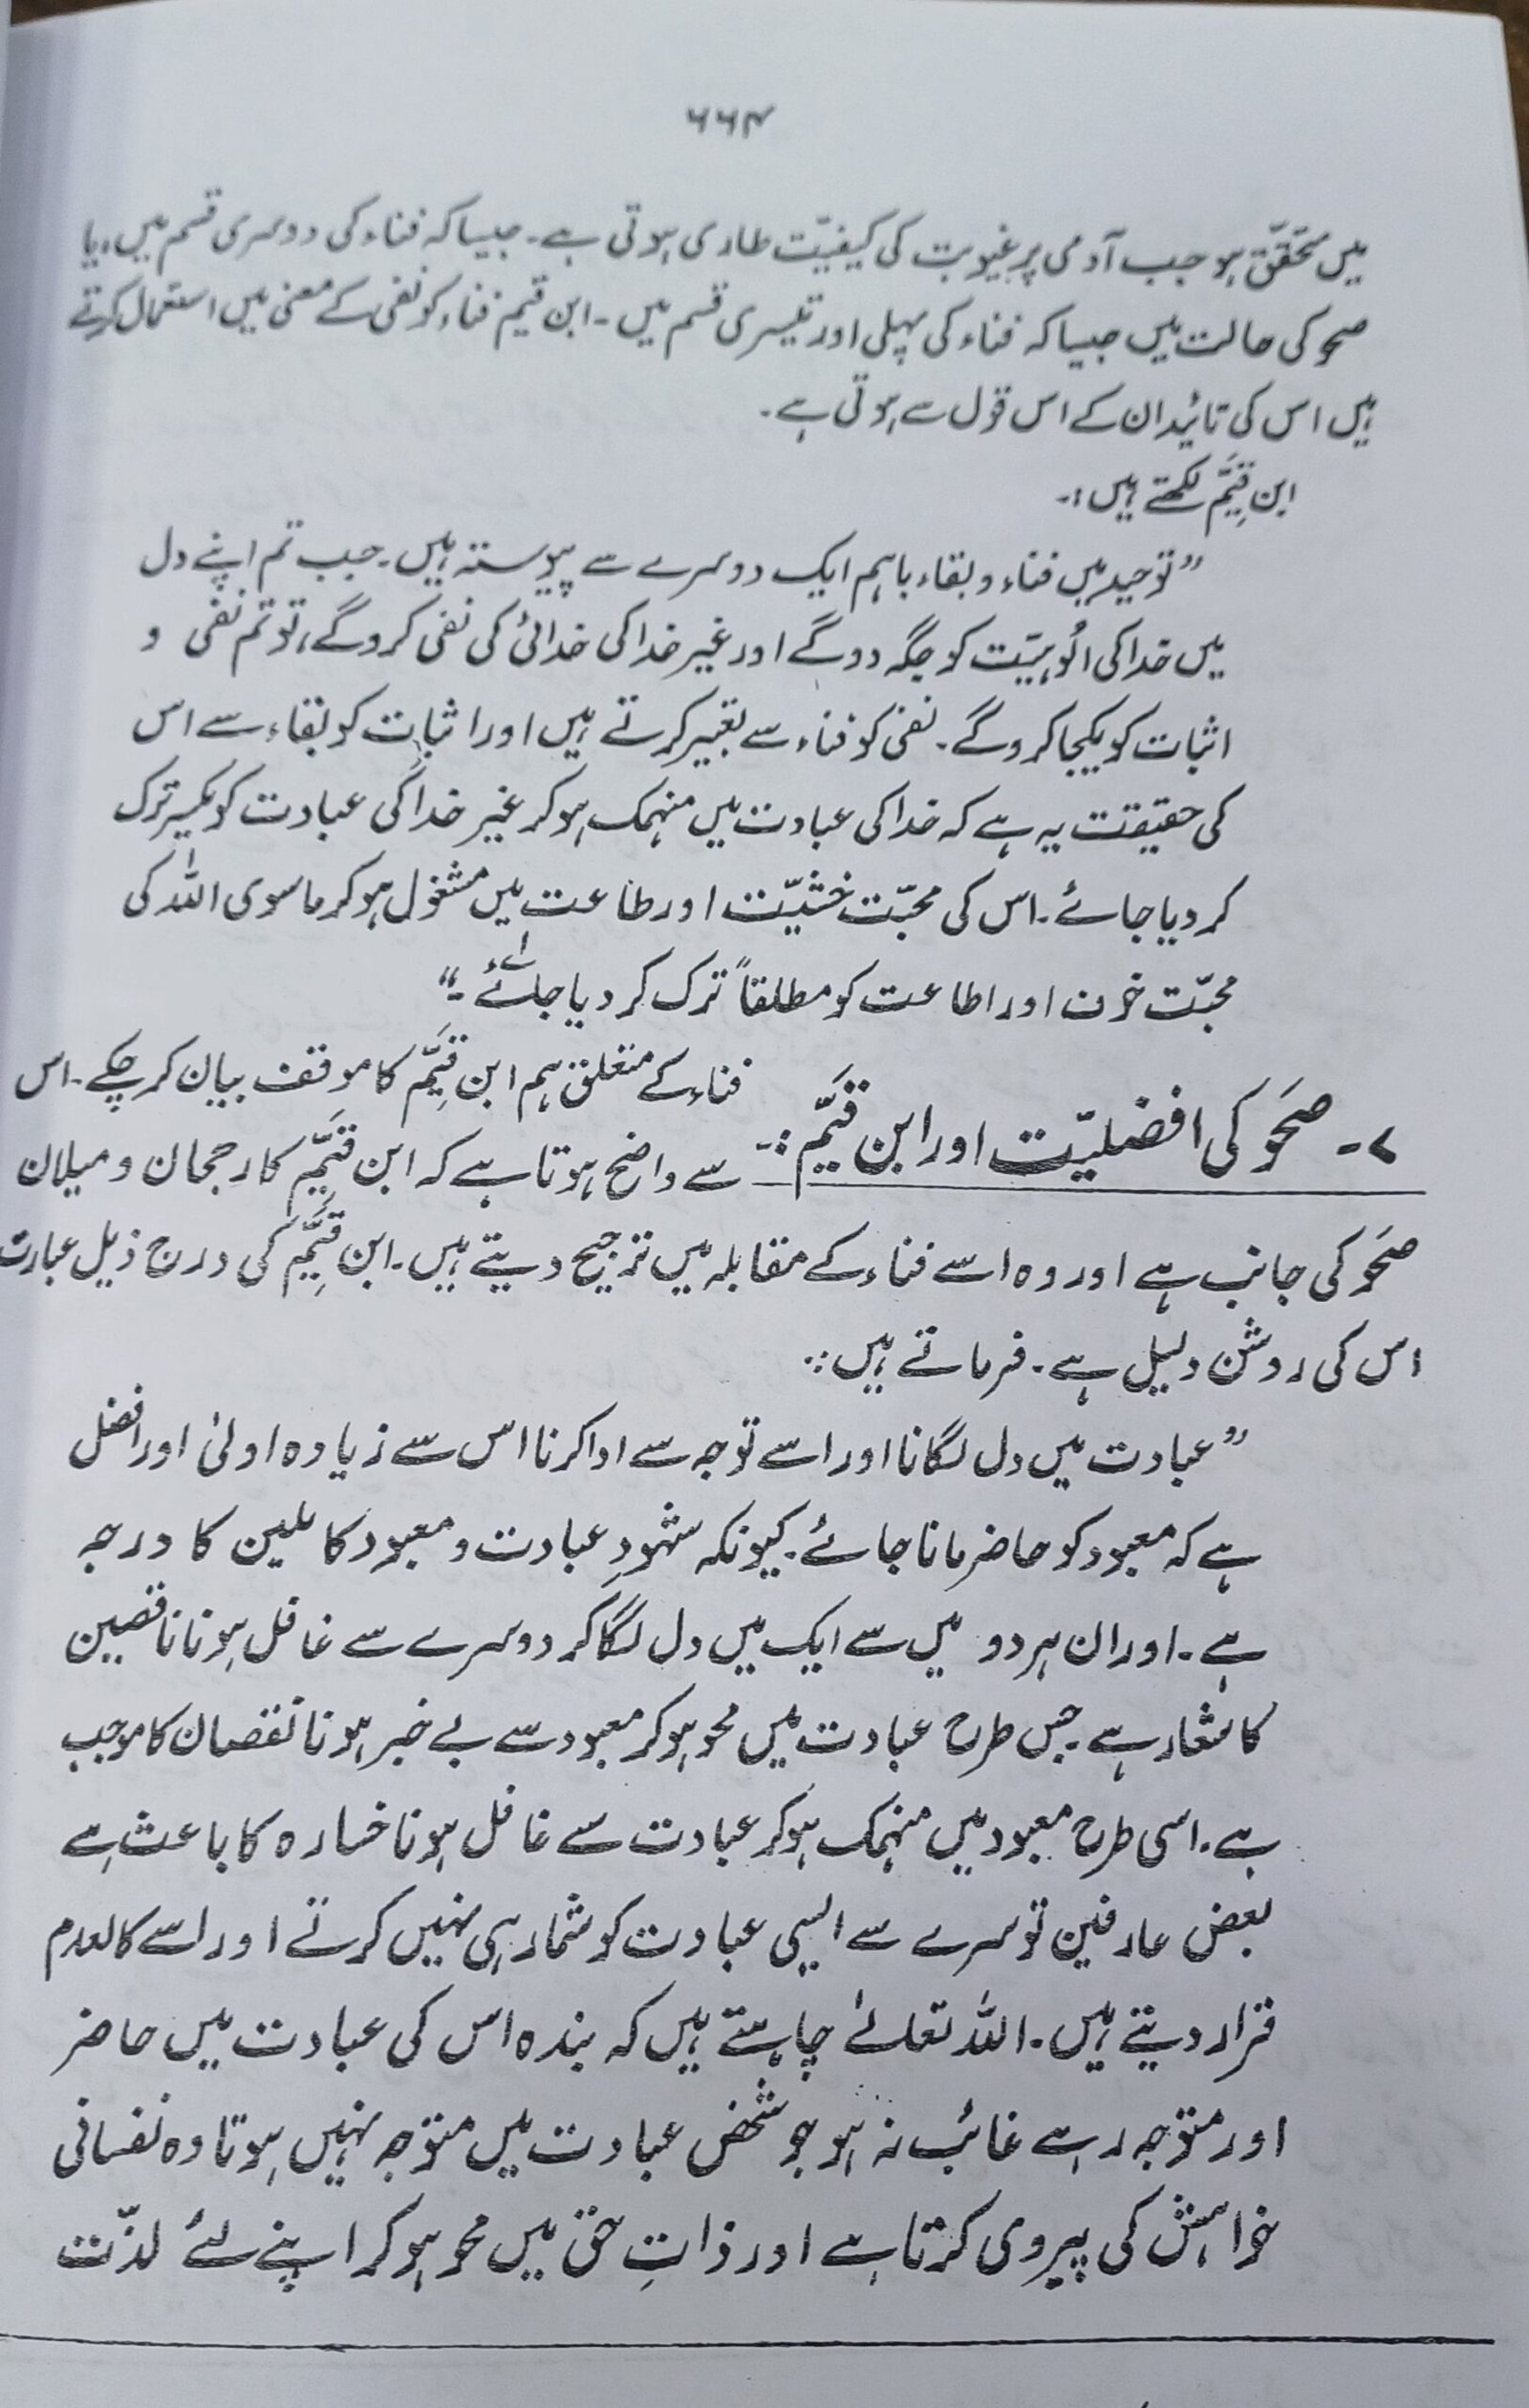 ۶۶۴
میں متحقّق ہو جب آدمی پر غیوبت کی کیفیّت طاری ہوتی ہے۔ جیسا کہ فناء کی دوسری قسم میں، یا
صحو کی حالت میں جیسا کہ فناء کی پہلی اور تیسری قسم میں۔ ابن قیم فناء کو نفی کے معنی میں استعمال کرتے
ہیں اس کی تائید ان کے اس قول سے ہوتی ہے۔
ابن قیِّم لکھتے ہیں:۔
”توحید میں فناء و بقاء باہم ایک دوسرے سے پیوستہ ہیں۔ جب تم اپنے دل
میں خدا کی الُوہیّت کو جگہ دو گے اور غیر خدا کی خدائی کی نفی کرو گے، تو تم نفی و
اثبات کو یکجا کرو گے۔ نفی کو فناء سے تعبیر کرتے ہیں اور اثبات کو بقاء سے اس
کی حقیقت یہ ہے کہ خدا کی عبادت میں منہمک ہو کر غیر خدا کی عبادت کو یکسر ترک
کر دیا جائے۔ اس کی محبّت خشیّت اور طاعت میں مشغول ہو کر ماسوی اللہ کی
محبّت خوف اور اطاعت کو مطلقاً ترک کر دیا جائے۔“
فناء کے متعلق ہم ابن قیِّم کا موقف بیان کر چکے۔ اس
۷۔ صَحو کی افضلیّت اور ابن قیَّم:۔ سے واضح ہوتا ہے کہ ابن قیِّم کا رجحان و میلان
صَحو کی جانب ہے اور وہ اسے فناء کے مقابلہ میں ترجیح دیتے ہیں۔ ابن قیِّم کی درج ذیل عبارت
اس کی روشن دلیل ہے۔ فرماتے ہیں:۔
”عبادت میں دل لگانا اور اسے توجہ سے ادا کرنا اس سے زیادہ اولیٰ اور افضل
ہے کہ معبود کو حاضر مانا جائے۔ کیونکہ شہودِ عبادت و معبود کاملین کا درجہ
ہے۔ اور ان ہر دو میں سے ایک میں دل لگا کر دوسرے سے غافل ہونا ناقصین
کا شعار ہے۔ جس طرح عبادت میں محو ہو کر معبود سے بے خبر ہونا نقصان کا موجب
ہے۔ اسی طرح معبود میں منہمک ہو کر عبادت سے غافل ہونا خسارہ کا باعث ہے
بعض عارفین تو سرے سے ایسی عبادت کو شمار ہی نہیں کرتے اور اسے کالعدم
قرار دیتے ہیں۔ اللہ تعالےٰ چاہتے ہیں کہ بندہ اس کی عبادت میں حاضر
اور متوجہ رہے غائب نہ ہو جو شخص عبادت میں متوجہ نہیں ہوتا وہ نفسانی
خواہش کی پیروی کرتا ہے اور ذاتِ حق میں محو ہو کر اپنے لئے لذّت